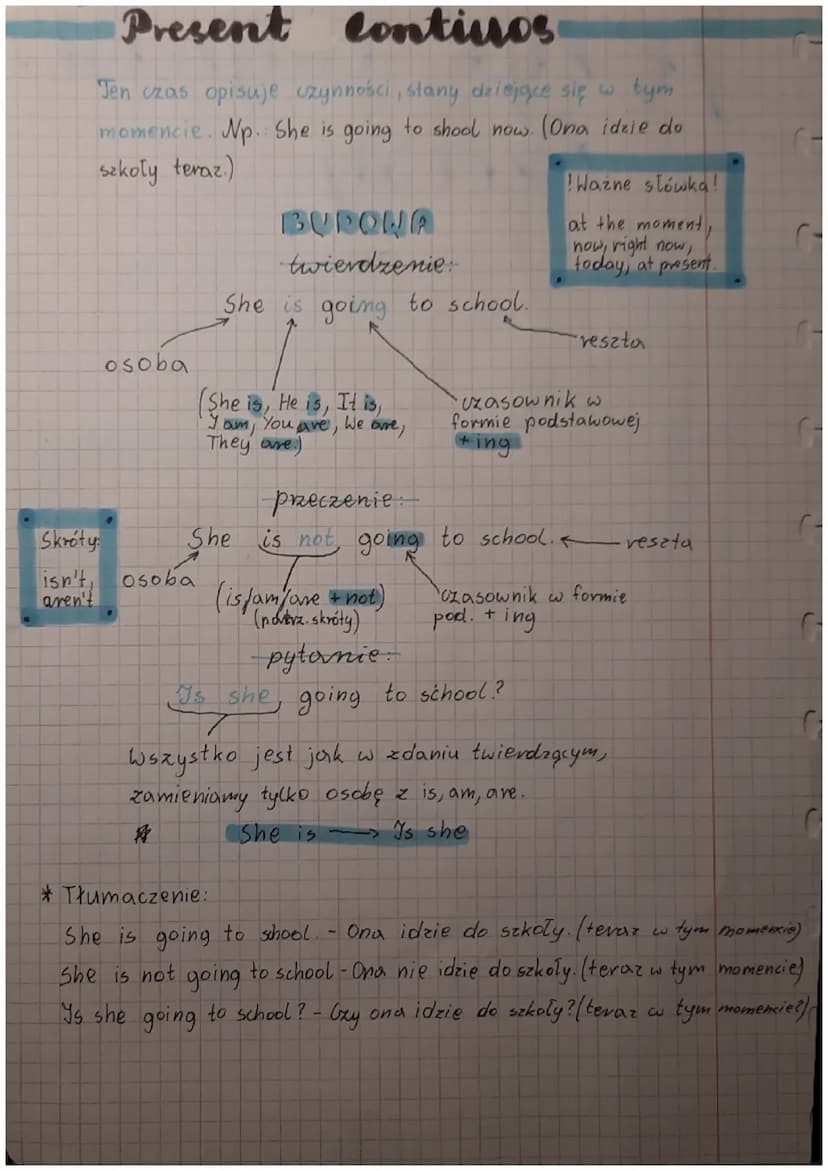 Present Continuos
Ten czas opisuje czynności, stany dziejące się w tym
momencie. Np.: She is going to shool now. (Ona idzie do
szkoły teraz.)
!Ważne słówka!
at the moment,
now, right now,
today, at present.
BUDOWA
twierdzenie:
She is going to school.
osoba
reszta
(She is, He is, It is,
I am, You are, We are,
They are.)
czasownik w
formie podstawowej
+ing
przeczenie:
Skróty:
isn't,
aren't
She is not going to school.
reszta
osoba
(is/am/are + not)
(patrz. skróty)
czasownik w formie
pod. + ing
pytanie:
Is she going to school?
Wszystko jest jak w zdaniu twierdzącym,
zamieniamy tylko osobę z is, am, are.
She is → Is she
* Tłumaczenie:
She is going to shool. - Ona idzie do szkoły. (teraz w tym momencie)
She is not going to school - Ona nie idzie do szkoły. (teraz w tym momencie)
Is she going to school? - Czy ona idzie do szkoły? (teraz w tym momencie?)